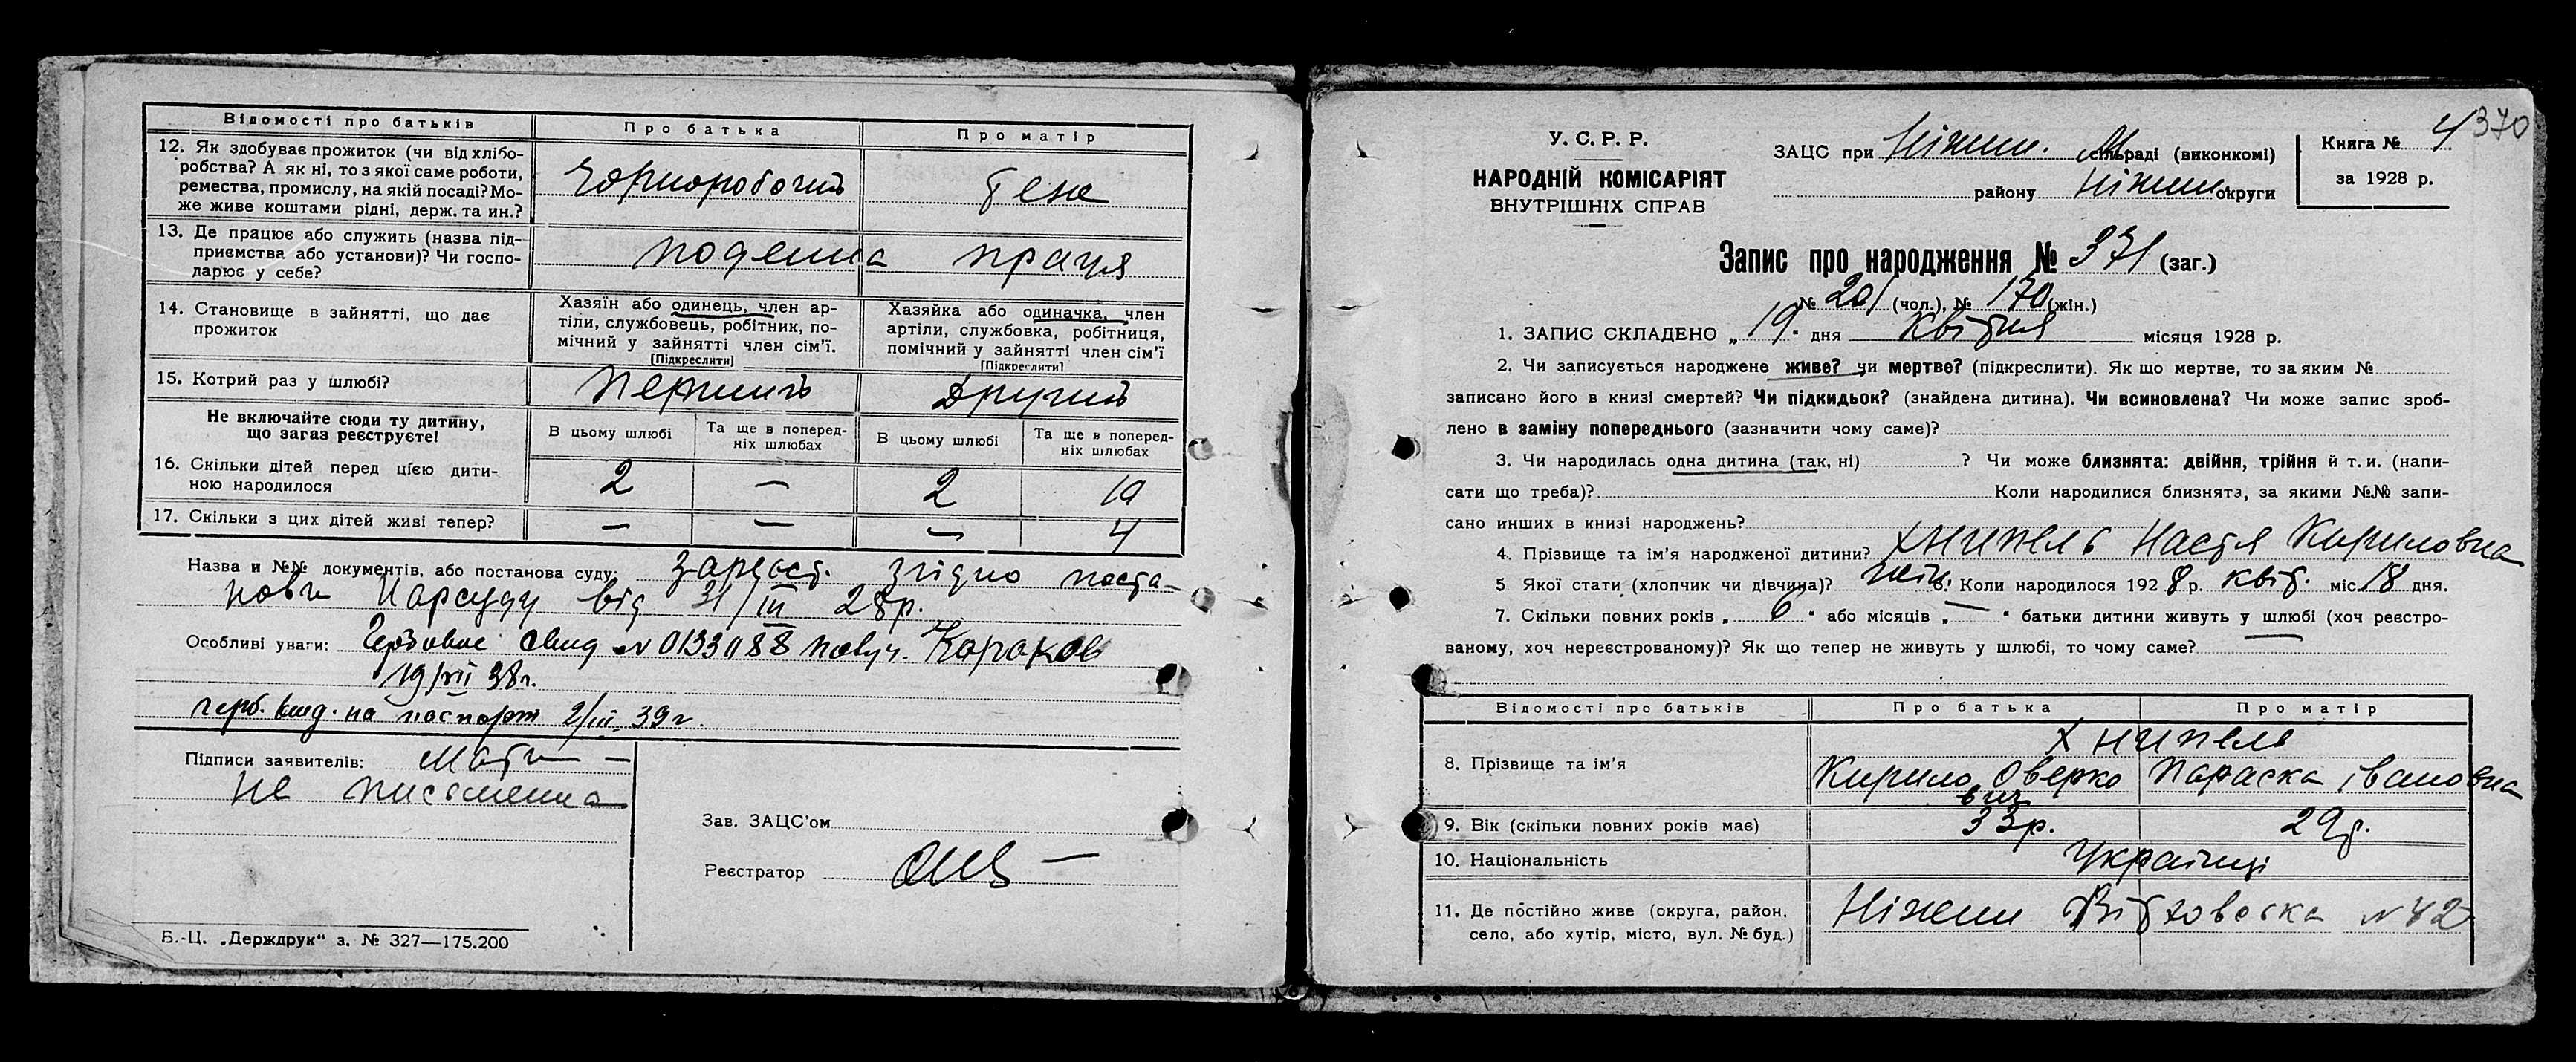 Відомості про батьків
Про батька
Про матір
12. Як здобуває прожиток (чи від хлібо-
робства? А як ні, то з якої саме роботи,
ремества, промислу, на якій посаді? Мо-
же живе коштами рідні, держ. та ин.?
Чорноробочий
теж
13. Де працює або служить (назва під-
приємства або установи)? Чи госпо-
дарює у себе?
поденна праця
14. Становище в зайнятті, що дає
прожиток
Хазяїн або одинець, член ар-
тіли, службовець, робітник, по-
мічний у зайнятті член сім'ї.
(Підкреслити)
Хазяйка або одиначка, член
артіли, службовка, робітниця,
помічний у зайнятті член сім'ї
(Підкреслити)
15. Котрий раз у шлюбі?
Перший
Другий
Не включайте сюди ту дитину,
що загаз реєструєте!
В цьому шлюбі
Та ще в поперед-
ніх шлюбах
В цьому шлюбі
Та ще в поперед-
ніх шлюбах
16. Скільки дітей перед цією дити-
ною народилося
2 — 2
17. Скільки з цих дітей живі тепер?
— — — 4
Назва и №№ документів, або постанова суду: зареєст. згідно поста-
нови Нарсуду від 31/III 28р.
Особливі уваги: Гербовое свид № 0133088 получ.
19/VII 38г.
герб. выд. на паспорт 2/III 39г.
Підписи заявителів: Мати —
не письменна
Зав. ЗАЦС'ом
Реєстратор
Б.-Ц. „Держдрук" з. № 327—175.200
370
У. С. Р. Р.
НАРОДНІЙ КОМІСАРІЯТ
ВНУТРІШНІХ СПРАВ
ЗАЦС при Ніжин. М сільраді (виконкомі)
району Ніжин. округи
Книга № 4
за 1928 р.
Запис про народження № 371 (заг.)
№ 201 (чол.), № 170 (жін.)
1. ЗАПИС СКЛАДЕНО „ 19. дня квітня місяця 1928 р.
2. Чи записується народжене живе? чи мертве? (підкреслити). Як що мертве, то за яким №
записано його в книзі смертей? Чи підкидьок? (знайдена дитина). Чи всиновлена? Чи може запис зроб-
лено в заміну попереднього (зазначити чому саме)?
3. Чи народилась одна дитина (так, ні) ? Чи може близнята: двійня, трійня й т. и. (напи-
сати що треба)? Коли народилися близнята, за якими №№ запи-
сано инших в книзі народжень?
4. Прізвище та ім'я народженої дитини? Хнипель Настя Кириловна
5 Якої стати (хлопчик чи дівчина)? жін. 6. Коли народилося 1928 р. квіт. міс 18 дня.
7. Скільки повних років „ 6 " або місяців „ — " батьки дитини живуть у шлюбі (хоч реєстро-
ваному, хоч нереєстрованому)? Як що тепер не живуть у шлюбі, то чому саме?
Відомості про батьків
Про батька
Про матір
8. Прізвище та ім'я
Хнипель
Кирило Оверко
вич
Параска Івановна
9. Вік (скільки повних років має)
33р.
29р.
10. Національність
Українці
11. Де постійно живе (округа, район,
село, або хутір, місто, вул. № буд.)
Ніжин № 42